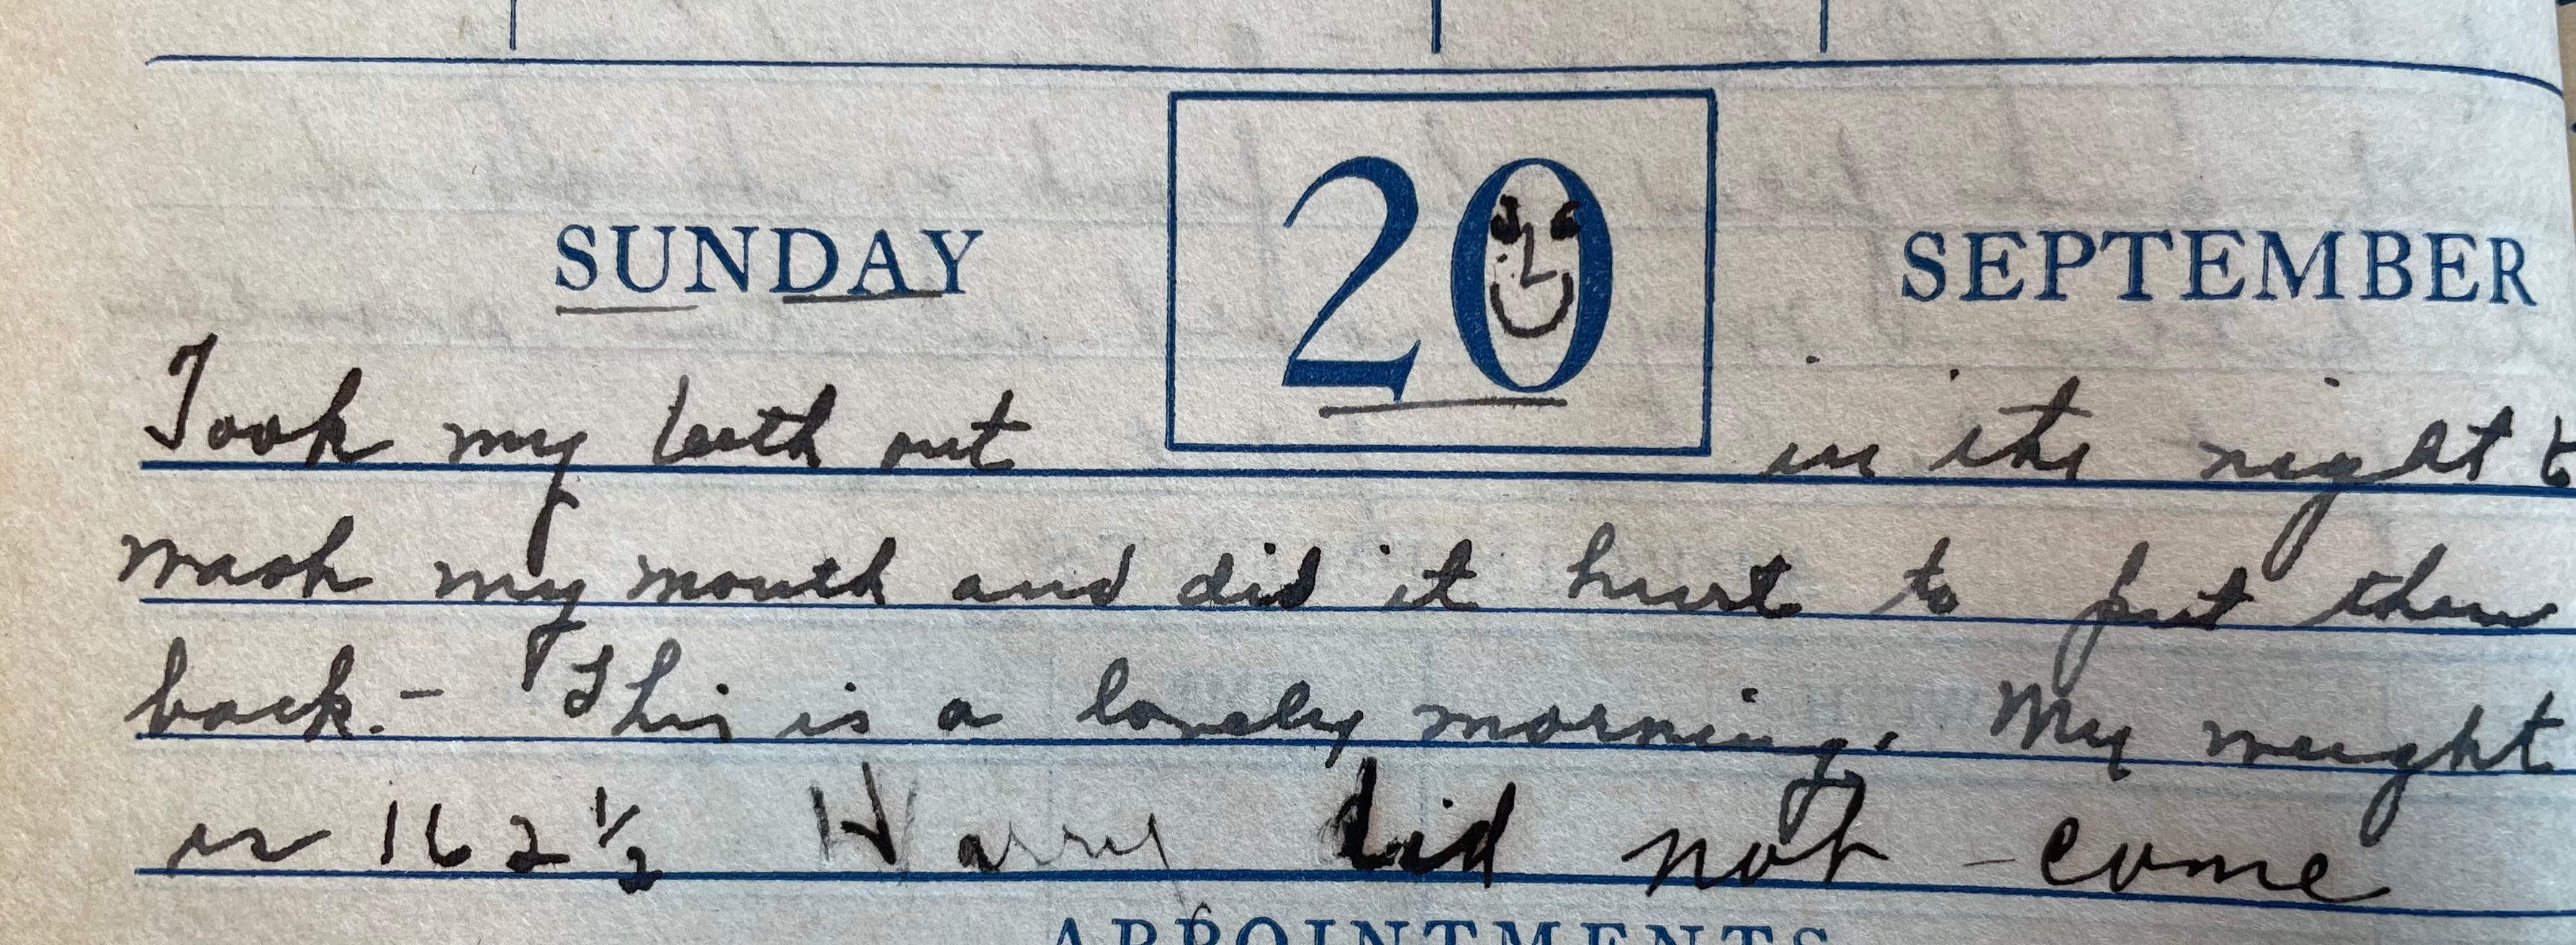 SUNDAY 20 SEPTEMBER
Took my teeth out in the night to
wash my mouth and did it hurt to put them
back. - This is a lovely morning. My weight
is 162 1/2 Harry did not - come
APPOINTMENTS